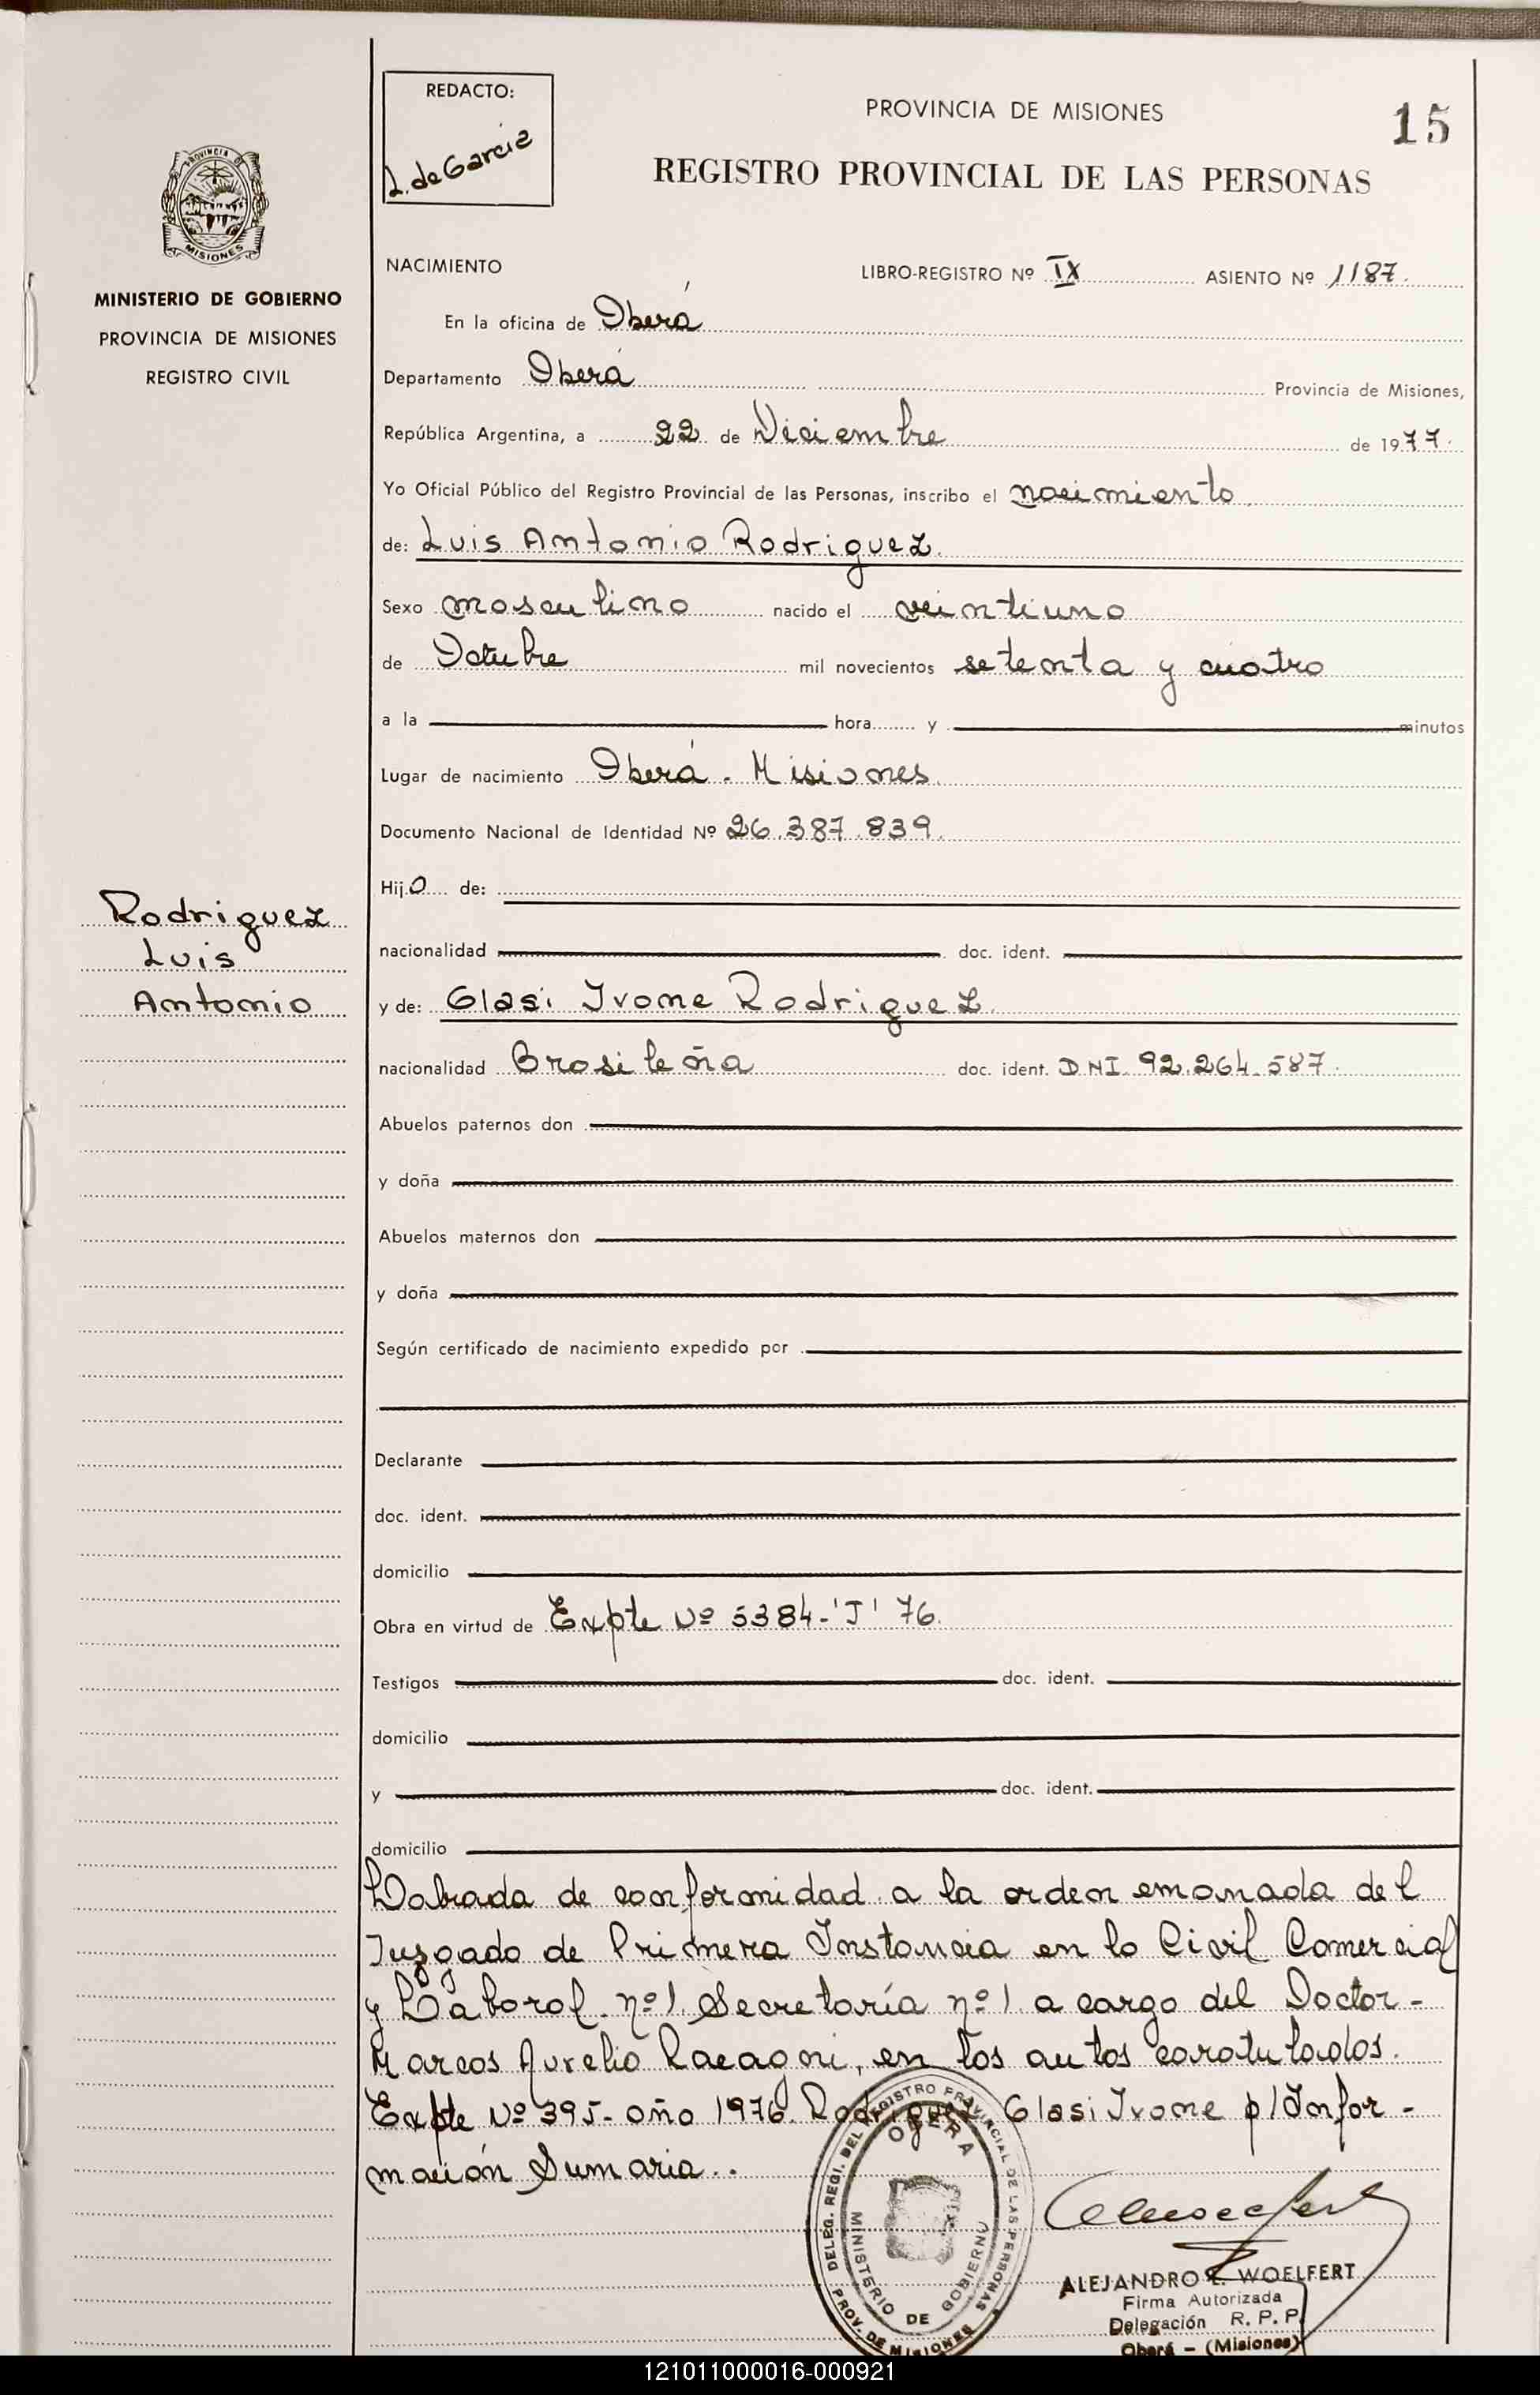 REDACTO:
L. de García
PROVINCIA DE MISIONES
15
REGISTRO PROVINCIAL DE LAS PERSONAS
PROVINCIA DE
MISIONES
MINISTERIO DE GOBIERNO
PROVINCIA DE MISIONES
REGISTRO CIVIL
NACIMIENTO LIBRO-REGISTRO Nº IX ASIENTO Nº 1187.
En la oficina de Oberá
Departamento Oberá Provincia de Misiones,
República Argentina, a 22 de Diciembre de 1977.
Yo Oficial Público del Registro Provincial de las Personas, inscribo el nacimiento
de: Luis Antonio Rodriguez.
Sexo masculino nacido el veintiuno
de Octubre mil novecientos setenta y cuatro
a la hora y minutos
Lugar de nacimiento Oberá. Misiones
Documento Nacional de Identidad Nº 26.387.839.
Hijo de:
Rodriguez
Luis
Antonio
nacionalidad doc. ident.
y de: Glasi Ivone Rodriguez.
nacionalidad Brasileña doc. ident. DNI. 92.264.587.
Abuelos paternos don
y doña
Abuelos maternos don
y doña
Según certificado de nacimiento expedido por
Declarante
doc. ident.
domicilio
Obra en virtud de Expte Nº 5384-'J' 76.
Testigos doc. ident.
domicilio
y doc. ident.
domicilio
Labrada de conformidad a la orden emanada del
Juzgado de Primera Instancia en lo Civil Comercial
y Laboral nº1. Secretaría nº1 a cargo del Doctor-
Marcos Aurelio Racagni, en los autos caratulados.
Expte Nº 395- año 1976. Rodriguez Glasi Ivone p/Infor-
mación Sumaria..
DELEG. REGI. DEL REGISTRO PROVINCIAL DE LAS PERSONAS
OBERA
MINISTERIO DE GOBIERNO
PROV. DE MISIONES
ALEJANDRO E. WOELFERT
Firma Autorizada
Delegación R. P. P.
Oberá - (Misiones)
121011000016-000921